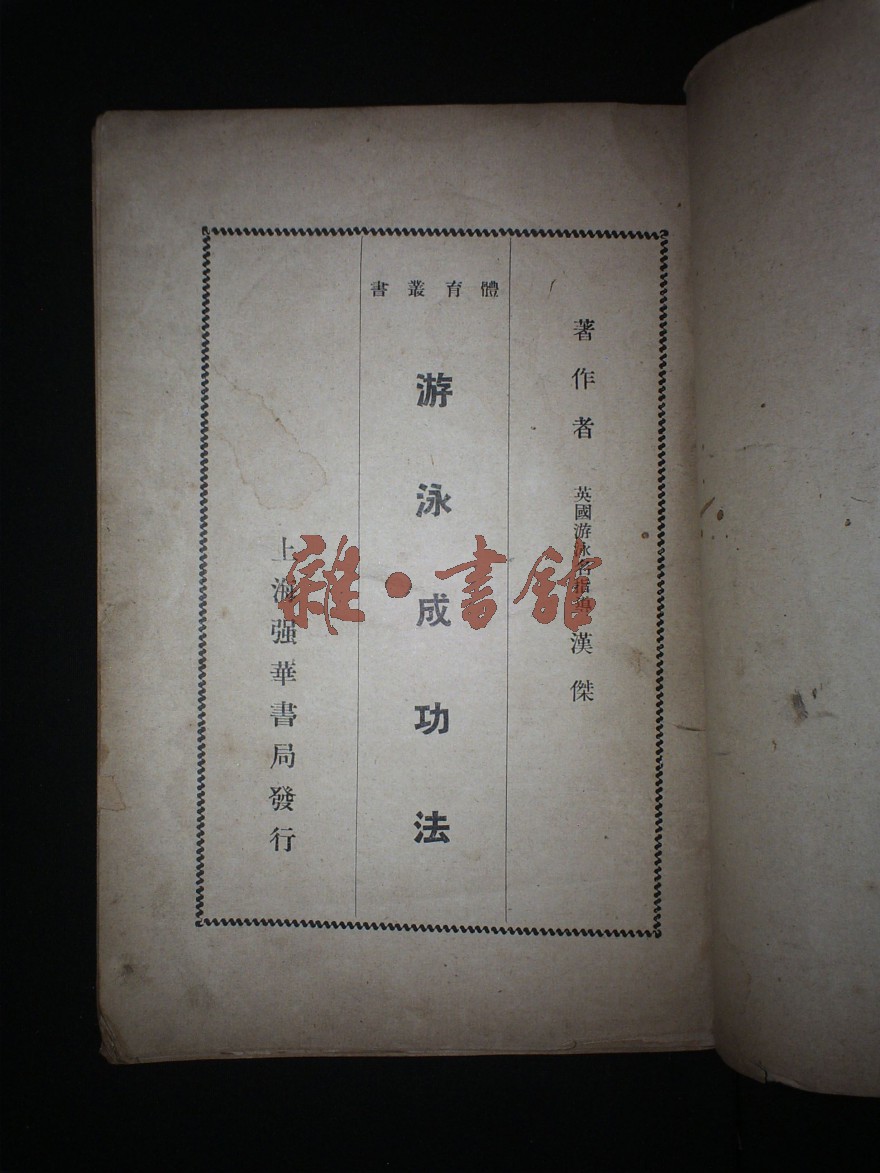 著作者 英國游泳名指導 漢傑
體育叢書
游泳成功法
上海强華書局發行
雜·書館